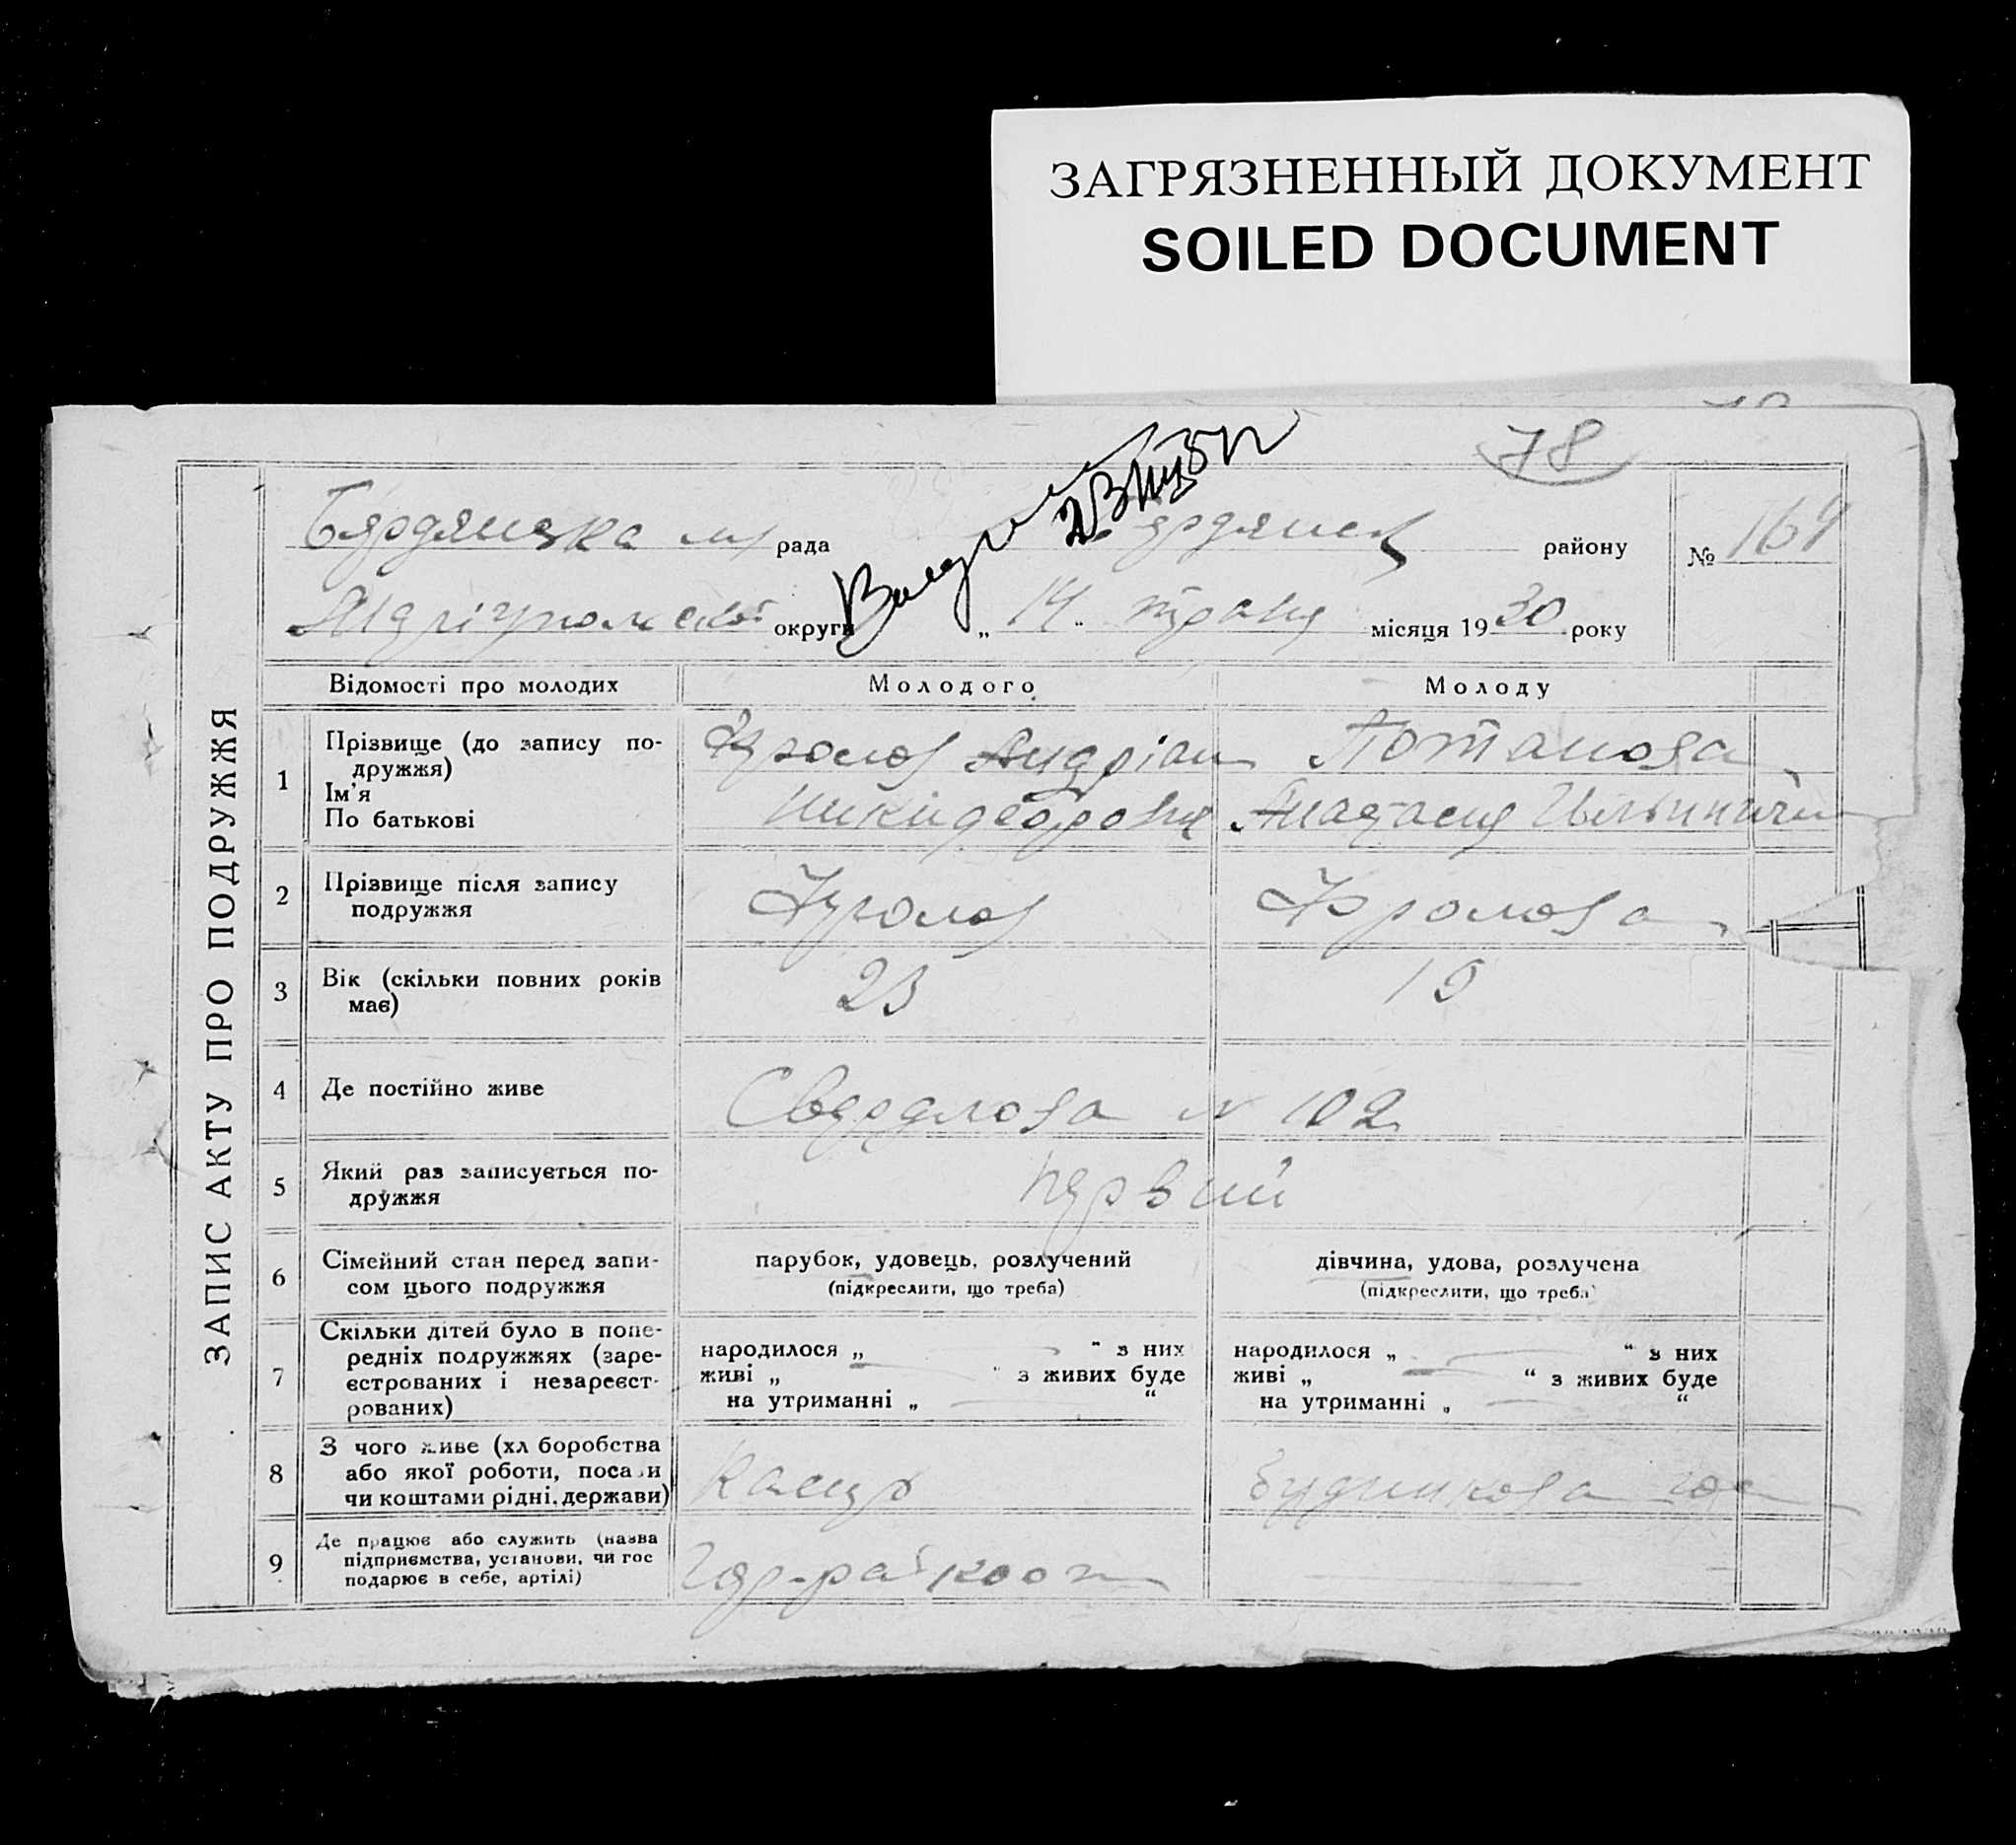 ЗАГРЯЗНЕННЫЙ ДОКУМЕНТ
SOILED DOCUMENT
78
Бердянська м/ рада Бердянськ району № 169
Маріупольської округи „ 14 “ травня місяця 1930 року
ЗАПИС АКТУ ПРО ПОДРУЖЖЯ
Відомості про молодих Молодого Молоду
1 Прізвище (до запису по-
дружжя)
Ім'я
По батькові
Фролов Андріан
Никифорович
Потапова
Анастасия
2 Прізвище після запису
подружжя
Фролов Фролова
3 Вік (скільки повних років
має)
23 19
4 Де постійно живе
Свердлова N 102
5 Який раз записується по-
дружжя
первий
6 Сімейний стан перед запи-
сом цього подружжя
парубок, удовець, розлучений
(підкреслити, що треба)
дівчина, удова, розлучена
(підкреслити, що треба)
7 Скільки дітей було в попе-
редніх подружжях (заре-
єстрованих і незареєст-
рованих)
народилося „ “ з них
живі „ “ з живих буде
на утриманні „ “
народилося „ “ з них
живі „ “ з живих буде
на утриманні „ “
8 З чого живе (хл боробства
або якої роботи, посади
чи коштами рідні, держави)
Касир
9 Де працює або служить (назва
підприємства, установи, чи гос
подарює в себе, артілі)